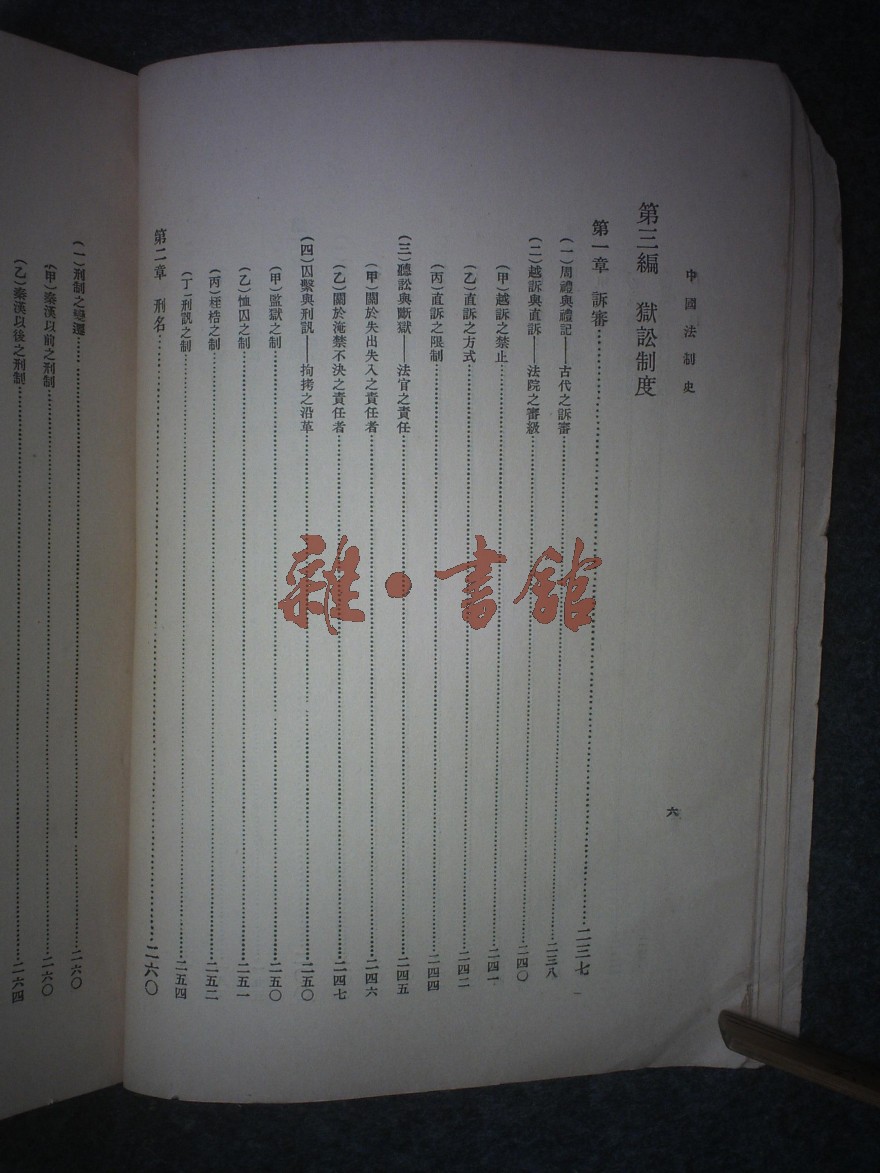 中國法制史
六
第三編 獄訟制度
第一章 訴審……二三七
(一)周禮與禮記——古代之訴審……二三八
(二)越訴與直訴——法院之審級……二四〇
(甲)越訴之禁止……二四一
(乙)直訴之方式……二四二
(丙)直訴之限制……二四四
(三)聽訟與斷獄——法官之責任……二四五
(甲)關於失出失入之責任者……二四六
(乙)關於淹禁不決之責任者……二四七
(四)囚繫與刑訊——拘拷之沿革……二五〇
(甲)監獄之制……二五〇
(乙)恤囚之制……二五一
(丙)桎梏之制……二五二
(丁)刑訊之制……二五四
第二章 刑名……二六〇
(一)刑制之變遷……二六〇
(甲)秦漢以前之刑制……二六〇
(乙)秦漢以後之刑制……二六四
雜·書館